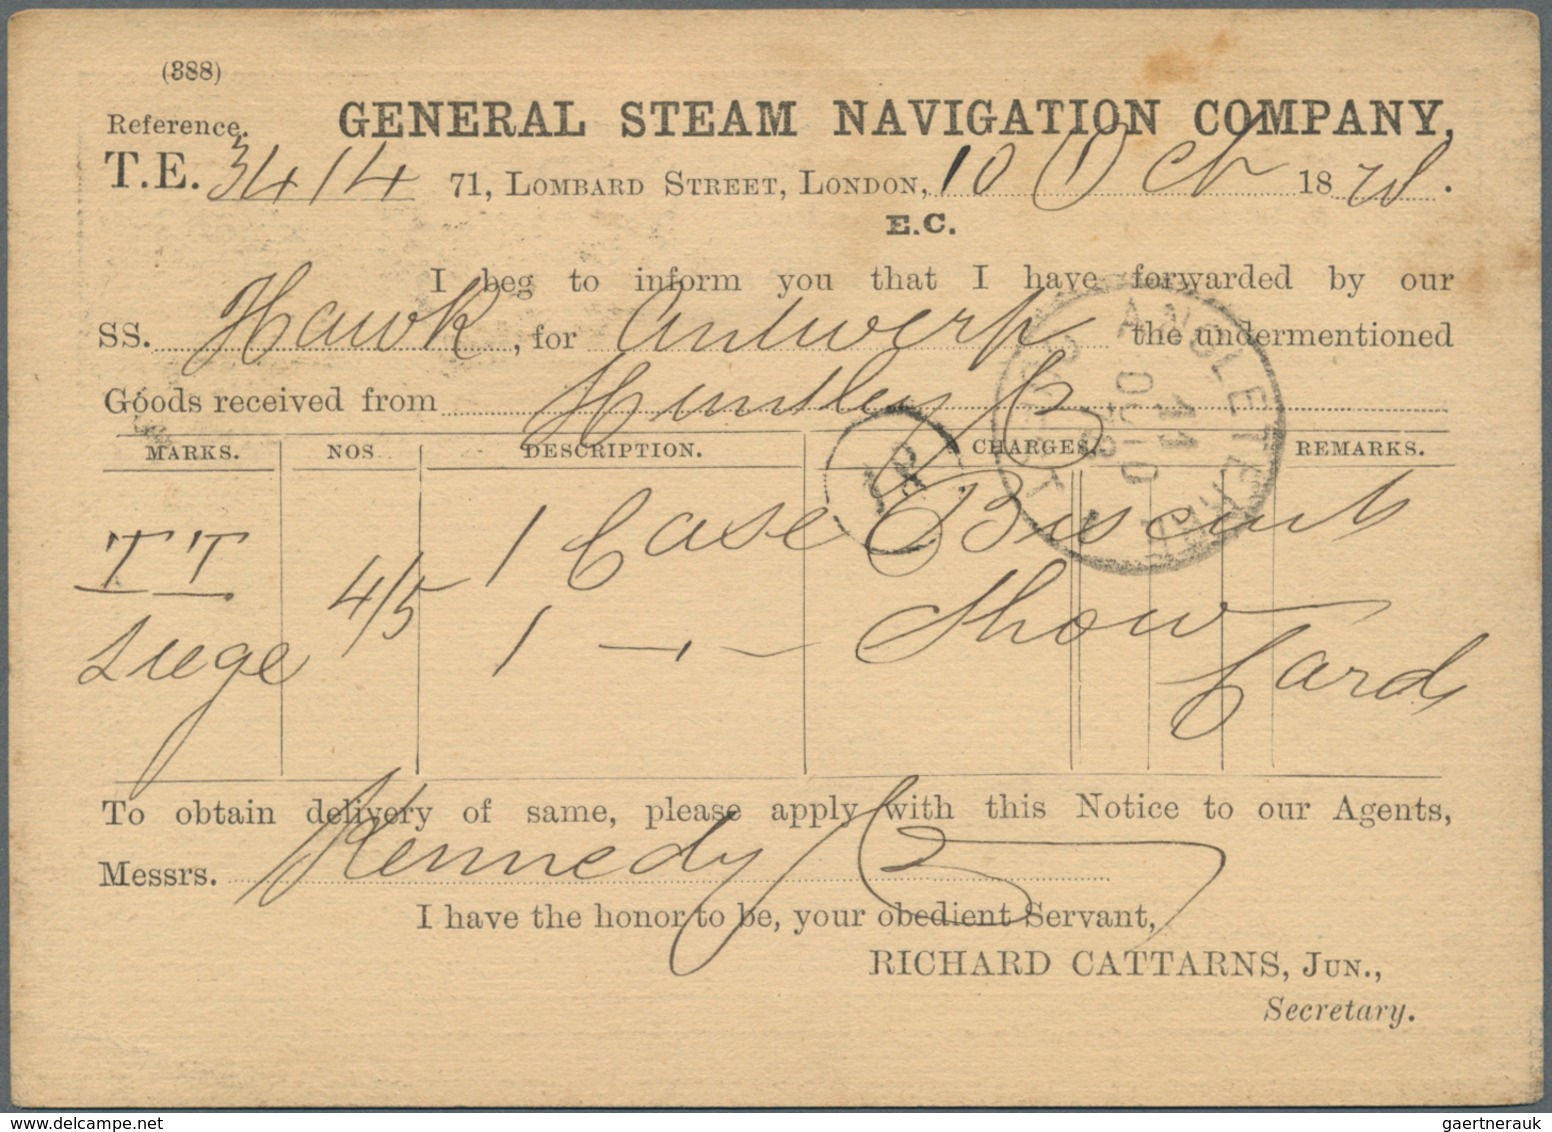 (388)
Reference. GENERAL STEAM NAVIGATION COMPANY,
T.E. 3414 71, LOMBARD STREET, LONDON, 10 Oct 1878.
E.C.
I beg to inform you that I have forwarded by our
SS. Hawk, for Antwerp the undermentioned
Goods received from Huntley
MARKS. NOS DESCRIPTION. CHARGES. REMARKS.
TT 4/5 1 Case Biscuits
Liege 1 — " — Show
Cards
To obtain delivery of same, please apply with this Notice to our Agents,
Messrs. Kennedy
I have the honor to be, your obedient Servant,
RICHARD CATTARNS, JUN.,
Secretary.
ANGLETERRE
11
OCT
gaertnerauk / delcampe.net